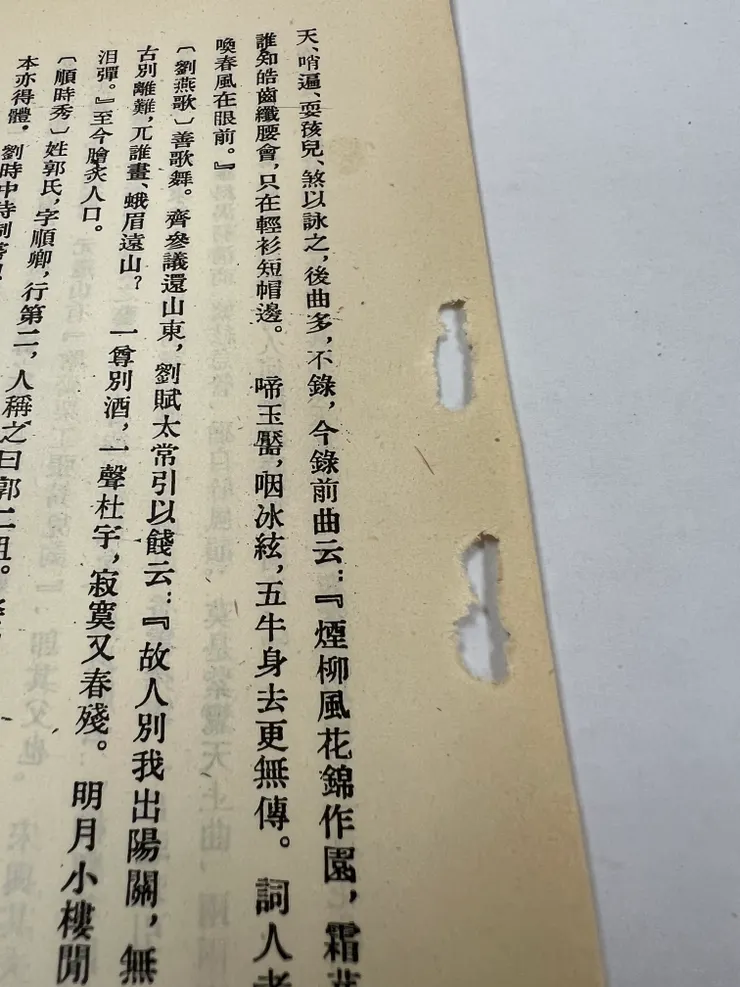 天、哨遍、耍孩兒、煞以詠之，後曲多，不錄，今錄前曲云：『煙柳風花錦作園，霜
誰知皓齒纖腰會，只在輕衫短帽邊。　啼玉靨，咽冰絃，五牛身去更無傳。　詞人老
喚春風在眼前。』
〔劉燕歌〕善歌舞。齊參議還山東，劉賦太常引以餞云：『故人別我出陽關，無
古別離難，兀誰畫、蛾眉遠山？　一尊別酒，一聲杜宇，寂寞又春殘。　明月小樓閒
泪彈。』至今膾炙人口。
〔順時秀〕姓郭氏，字順卿，行第二，人稱之曰郭二姐。
本亦得體。劉時中待制